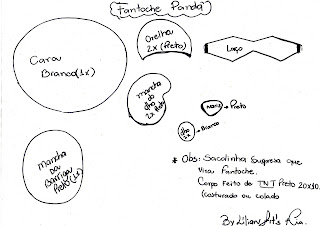 Fantoche Panda
Cara
Branco (1x)
Orelha
2x (Preto)
Laço
Mancha
do
olho
2x Preto
Nariz → Preto
olho
2x → Branco
Mancha
da
Barriga
Preto (1x)
* Obs: Sacolinha Surpresa que
Vira Fantoche.
Corpo Feito de TNT Preto 20x30.
(costurado ou colado
By Liliane